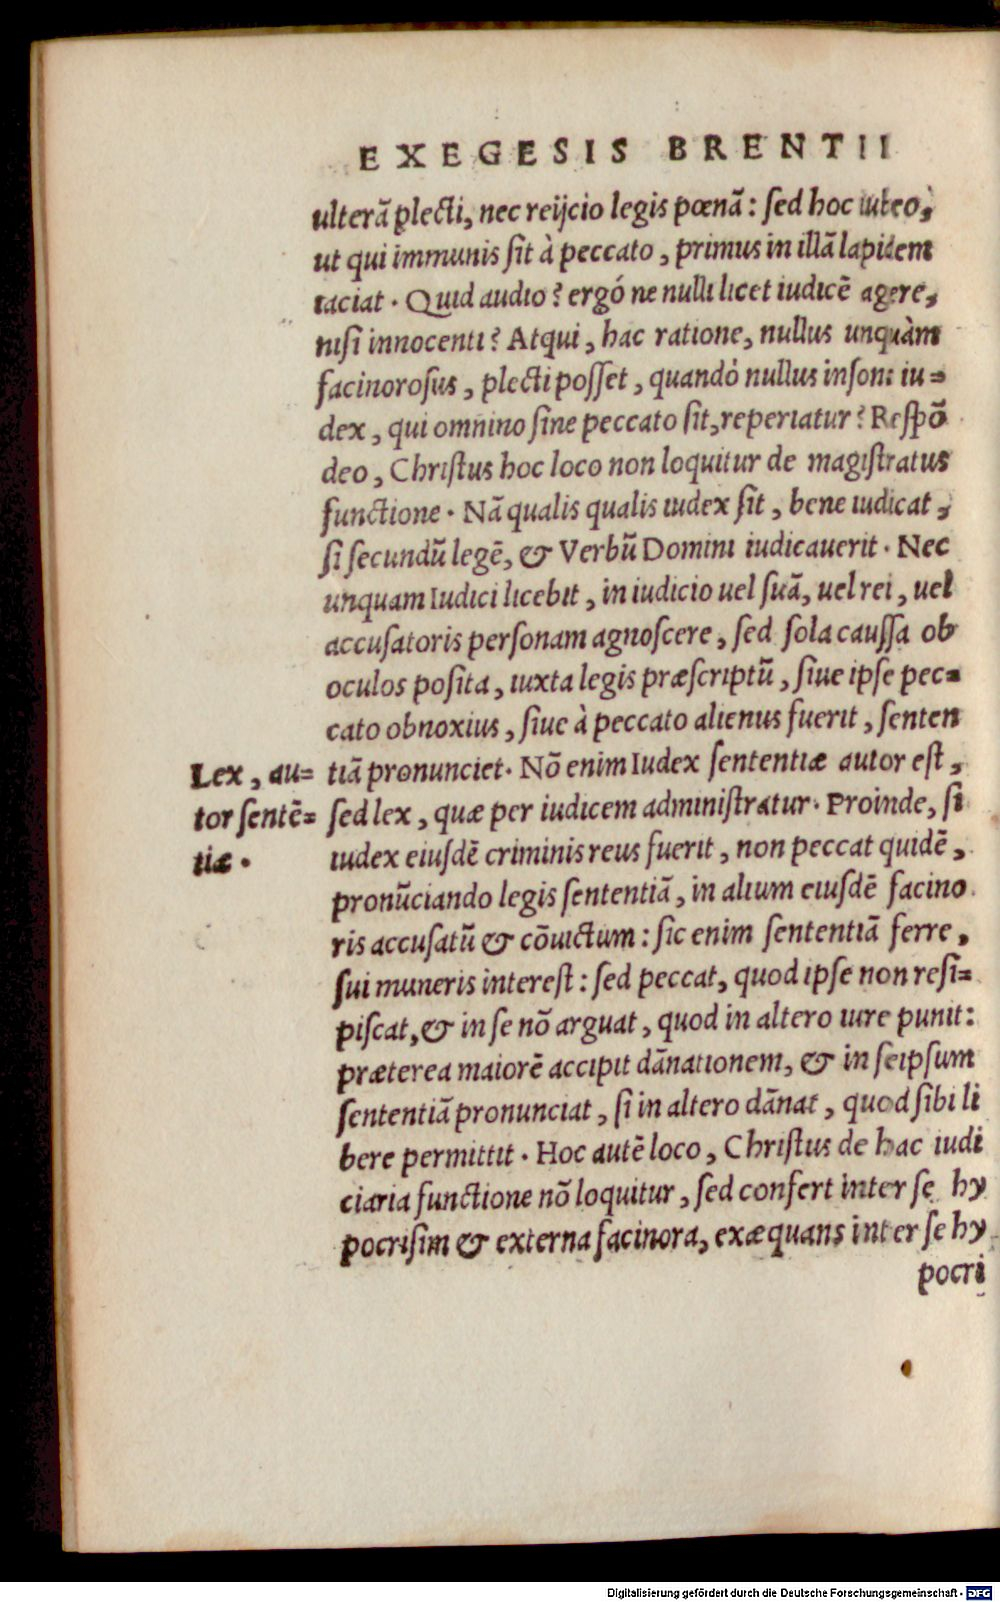 EXEGESIS BRENTII
ulterā plecti, nec reijcio legis pœnā: sed hoc iubeo,
ut qui immunis sit à peccato, primus in illā lapidem
iaciat. Quid audio? ergó ne nulli licet iudicē agere,
nisi innocenti? Atqui, hac ratione, nullus unquàm
facinorosus, plecti posset, quandò nullus insons iu=
dex, qui omnino sine peccato sit, reperiatur? Respō
deo, Christus hoc loco non loquitur de magistratus
functione. Nā qualis qualis iudex sit, bene iudicat,
si secundū legē, & Verbū Domini iudicauerit. Nec
unquam Iudici licebit, in iudicio uel suā, uel rei, uel
accusatoris personam agnoscere, sed sola caussa ob
oculos posita, iuxta legis præscriptū, siue ipse pec=
cato obnoxius, siue à peccato alienus fuerit, senten
tiā pronunciet. Nō enim Iudex sententiæ autor est,
sed lex, quæ per iudicem administratur. Proinde, si
iudex eiusdē criminis reus fuerit, non peccat quidē,
pronūciando legis sententiā, in alium eiusdē facino
ris accusatū & cōuictum: sic enim sententiā ferre,
sui muneris interest: sed peccat, quod ipse non resi=
piscat, & in se nō arguat, quod in altero iure punit:
præterea maiorē accipit dānationem, & in seipsum
sententiā pronunciat, si in altero dānat, quod sibi li
bere permittit. Hoc autē loco, Christus de hac iudi
ciaria functione nō loquitur, sed confert inter se hy
pocrisim & externa facinora, exæquans inter se hy
pocri
Lex, au=
tor sentē=
tiæ.
Digitalisierung gefördert durch die Deutsche Forschungsgemeinschaft - DFG